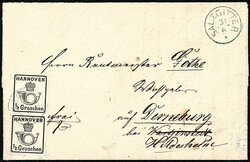 SALZGITTER
31
Herrn Rentmeister Götke
Wohlgeb.
frei
auf Derneburg
bei
Hildesheim
HANNOVER
½ Groschen
HANNOVER
½ Groschen